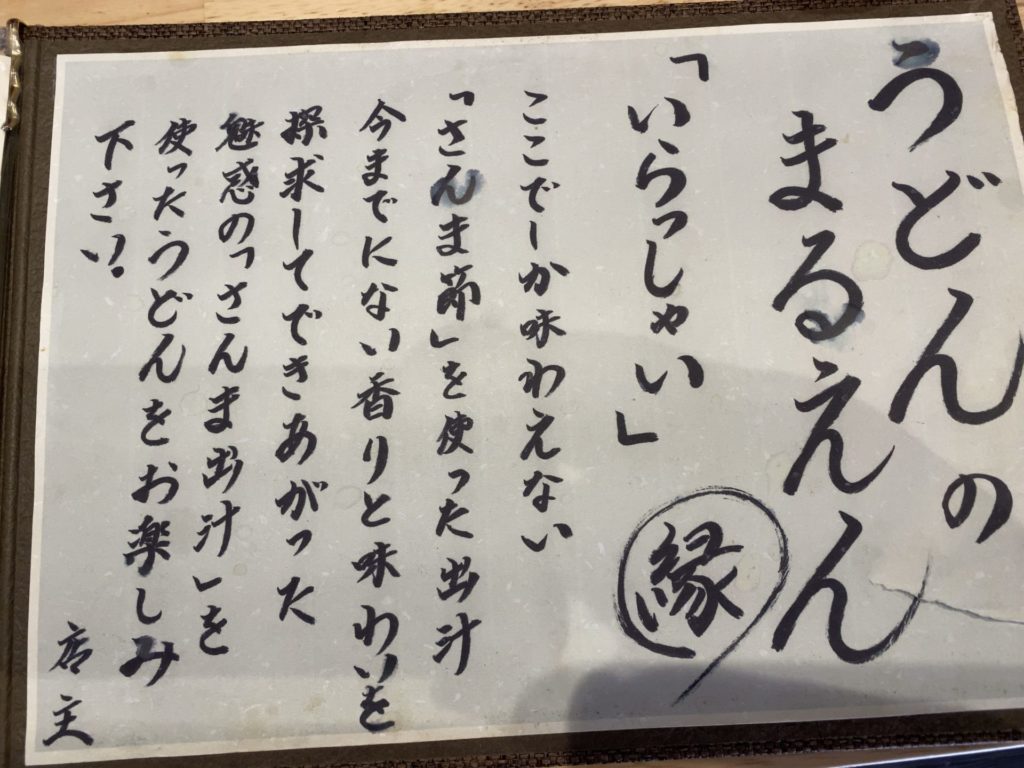 うどんの
まるえん
「いらっしゃい」
縁
ここでしか味わえない
「さんま節」を使った出汁
今までにない香りと味わいを
探求してできあがった
魅惑の「さんま出汁」を
使ったうどんをお楽しみ
下さい。
店主